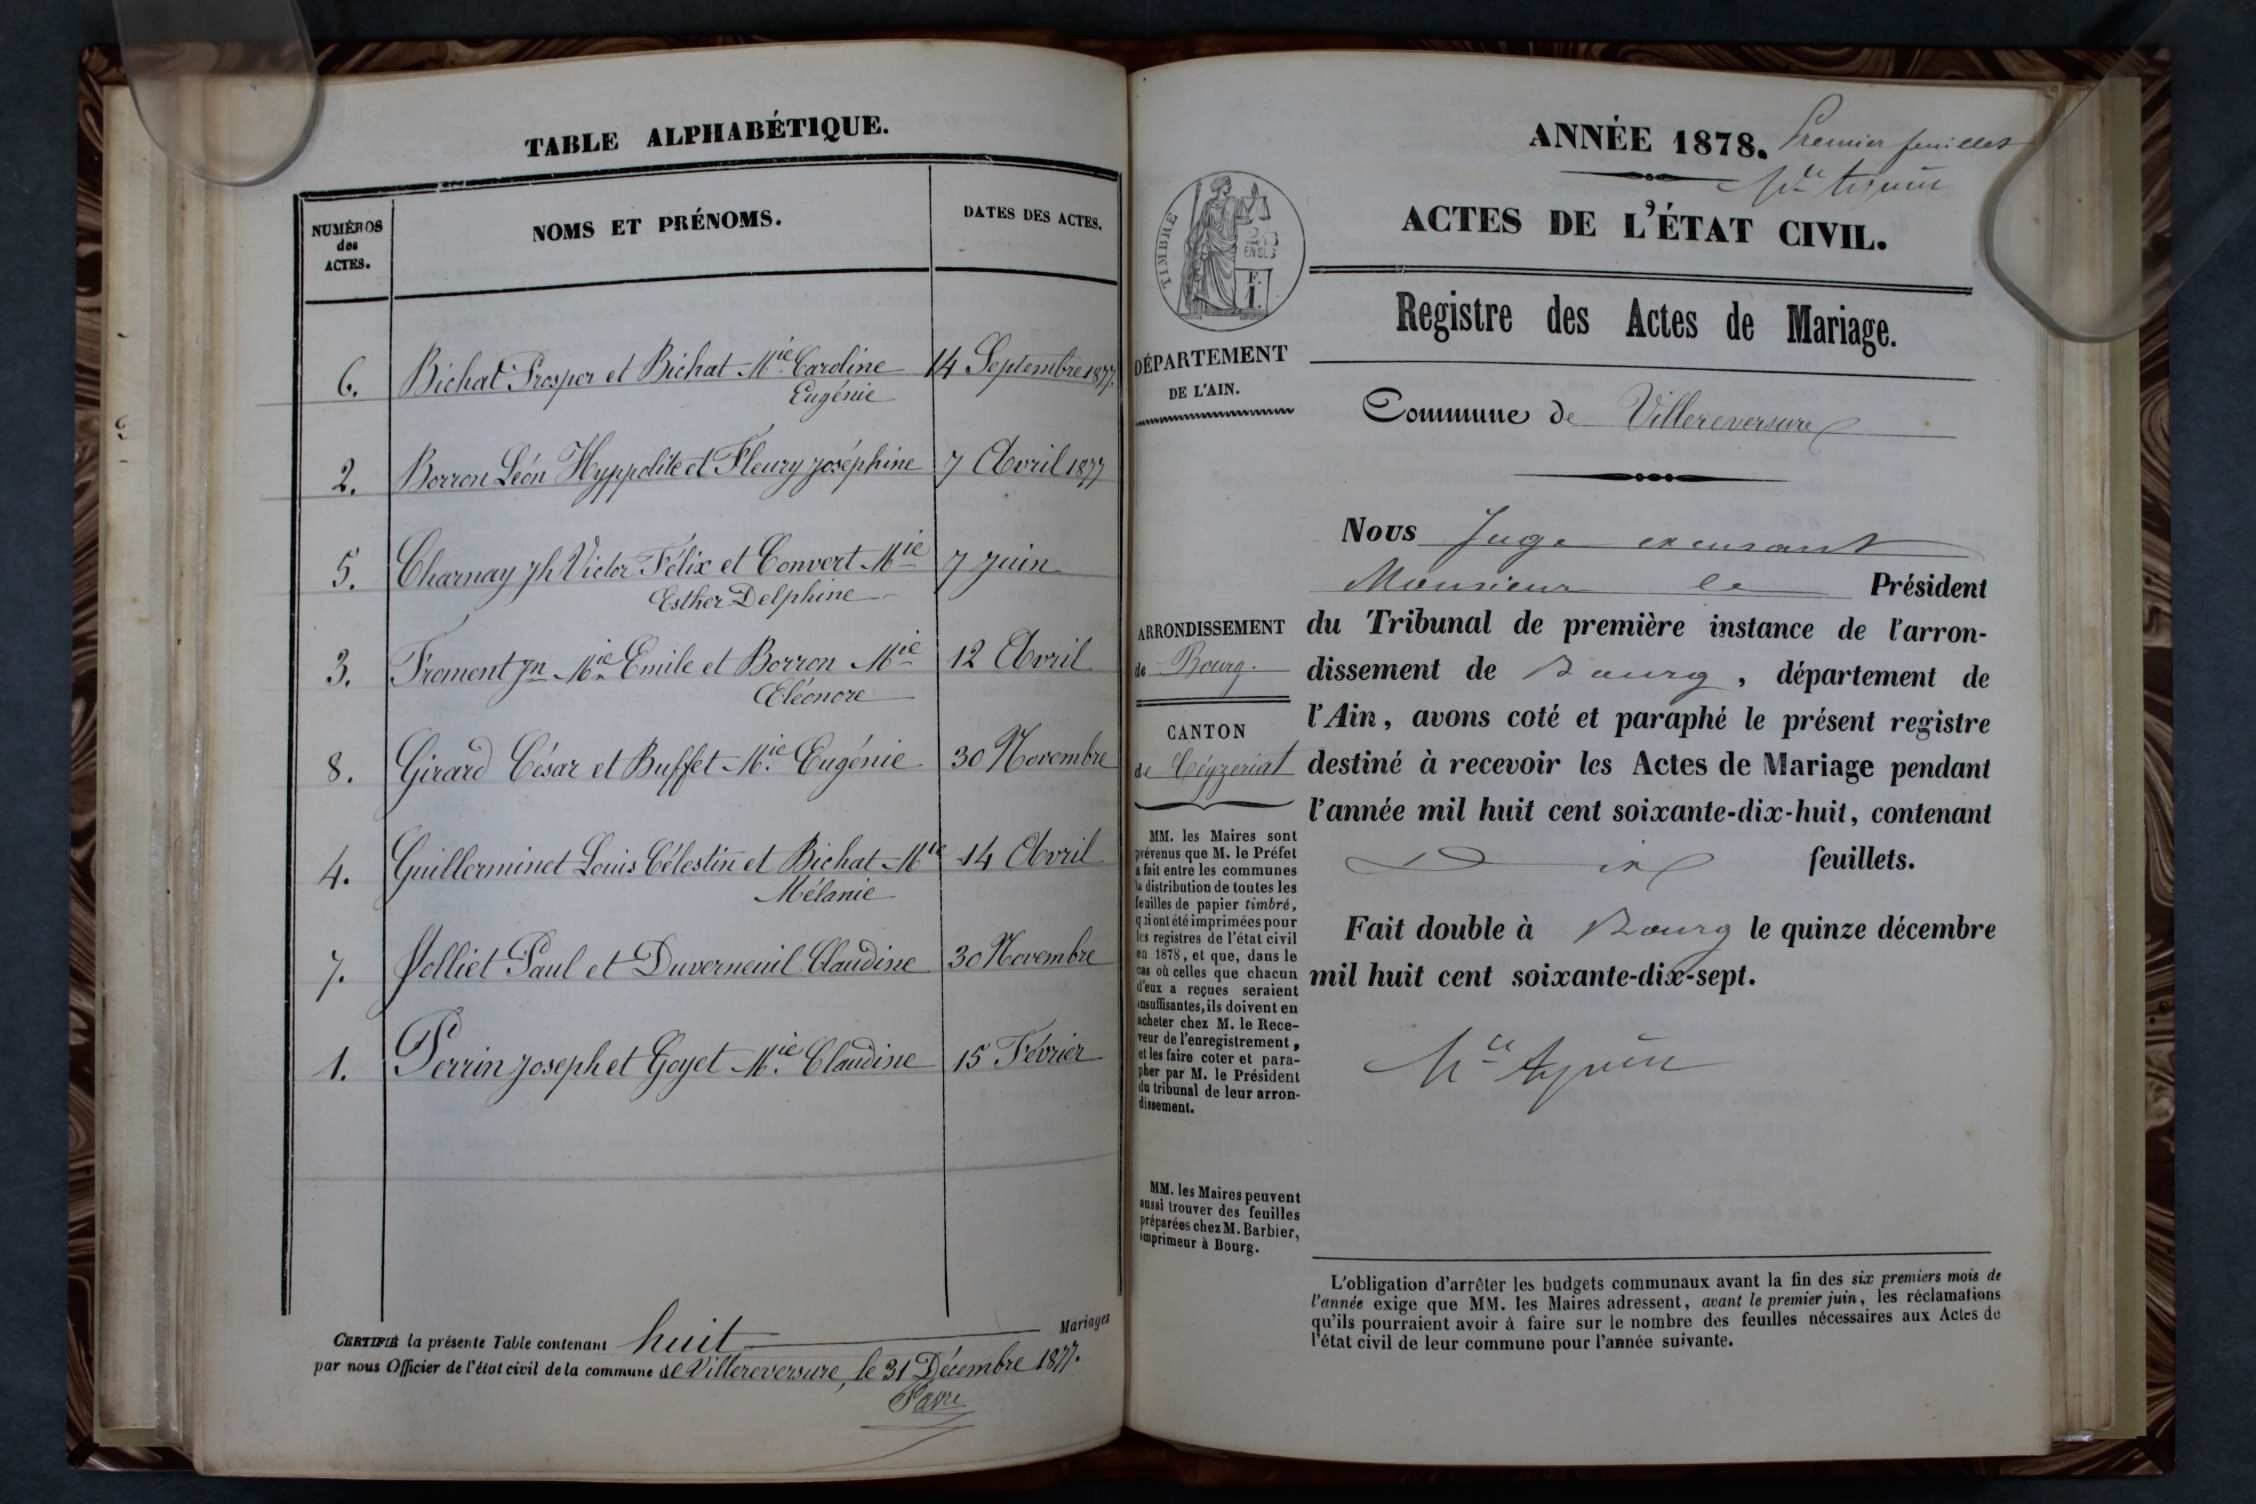 TABLE ALPHABÉTIQUE.
NUMÉROS
des
ACTES.
NOMS ET PRÉNOMS.
DATES DES ACTES.
6. Bichat Prosper et Bichat Mie Caroline 14 Septembre 1877.
Eugénie
2. Borron Léon Hyppolite et Fleury Joséphine 7 Avril 1877
5. Charnay Jh Victor Félix et Convert Mie 7 Juin
Esther Delphine
3. Froment Jn Mie Emile et Borron Mie 12 Avril
Eléonore
8. Girard César et Buffet Mie Eugénie 30 Novembre
4. Guillerminet Louis Célestin et Bichat Mie 14 Avril
Mélanie
7. Jolliet Paul et Duverneuil Claudine 30 Novembre
1. Perrin Joseph et Goyet Mie Claudine 15 Février
CERTIFIÉ la présente Table contenant huit Mariages
par nous Officier de l'état civil de la commune de Villereversure, le 31 Décembre 1877.
Favre
ANNÉE 1878. Premier feuillet
ACTES DE L'ÉTAT CIVIL.
TIMBRE
EN SUS
F.
1.
Registre des Actes de Mariage.
DÉPARTEMENT
DE L'AIN.
Commune de Villereversure
Nous Juge
Monsieur le Président
ARRONDISSEMENT
de Bourg.
CANTON
de Ceyzeriat
du Tribunal de première instance de l'arron-
dissement de Bourg, département de
l'Ain, avons coté et paraphé le présent registre
destiné à recevoir les Actes de Mariage pendant
l'année mil huit cent soixante-dix-huit, contenant
Dix feuillets.
Fait double à Bourg le quinze décembre
mil huit cent soixante-dix-sept.
MM. les Maires sont
prévenus que M. le Préfet
a fait entre les communes
la distribution de toutes les
feuilles de papier timbré,
qui ont été imprimées pour
les registres de l'état civil
en 1878, et que, dans le
cas où celles que chacun
d'eux a reçues seraient
insuffisantes, ils doivent en
acheter chez M. le Rece-
veur de l'enregistrement,
et les faire coter et para-
pher par M. le Président
du tribunal de leur arron-
dissement.
MM. les Maires peuvent
aussi trouver des feuilles
préparées chez M. Barbier,
imprimeur à Bourg.
L'obligation d'arrêter les budgets communaux avant la fin des six premiers mois de
l'année exige que MM. les Maires adressent, avant le premier juin, les réclamations
qu'ils pourraient avoir à faire sur le nombre des feuilles nécessaires aux Actes de
l'état civil de leur commune pour l'année suivante.